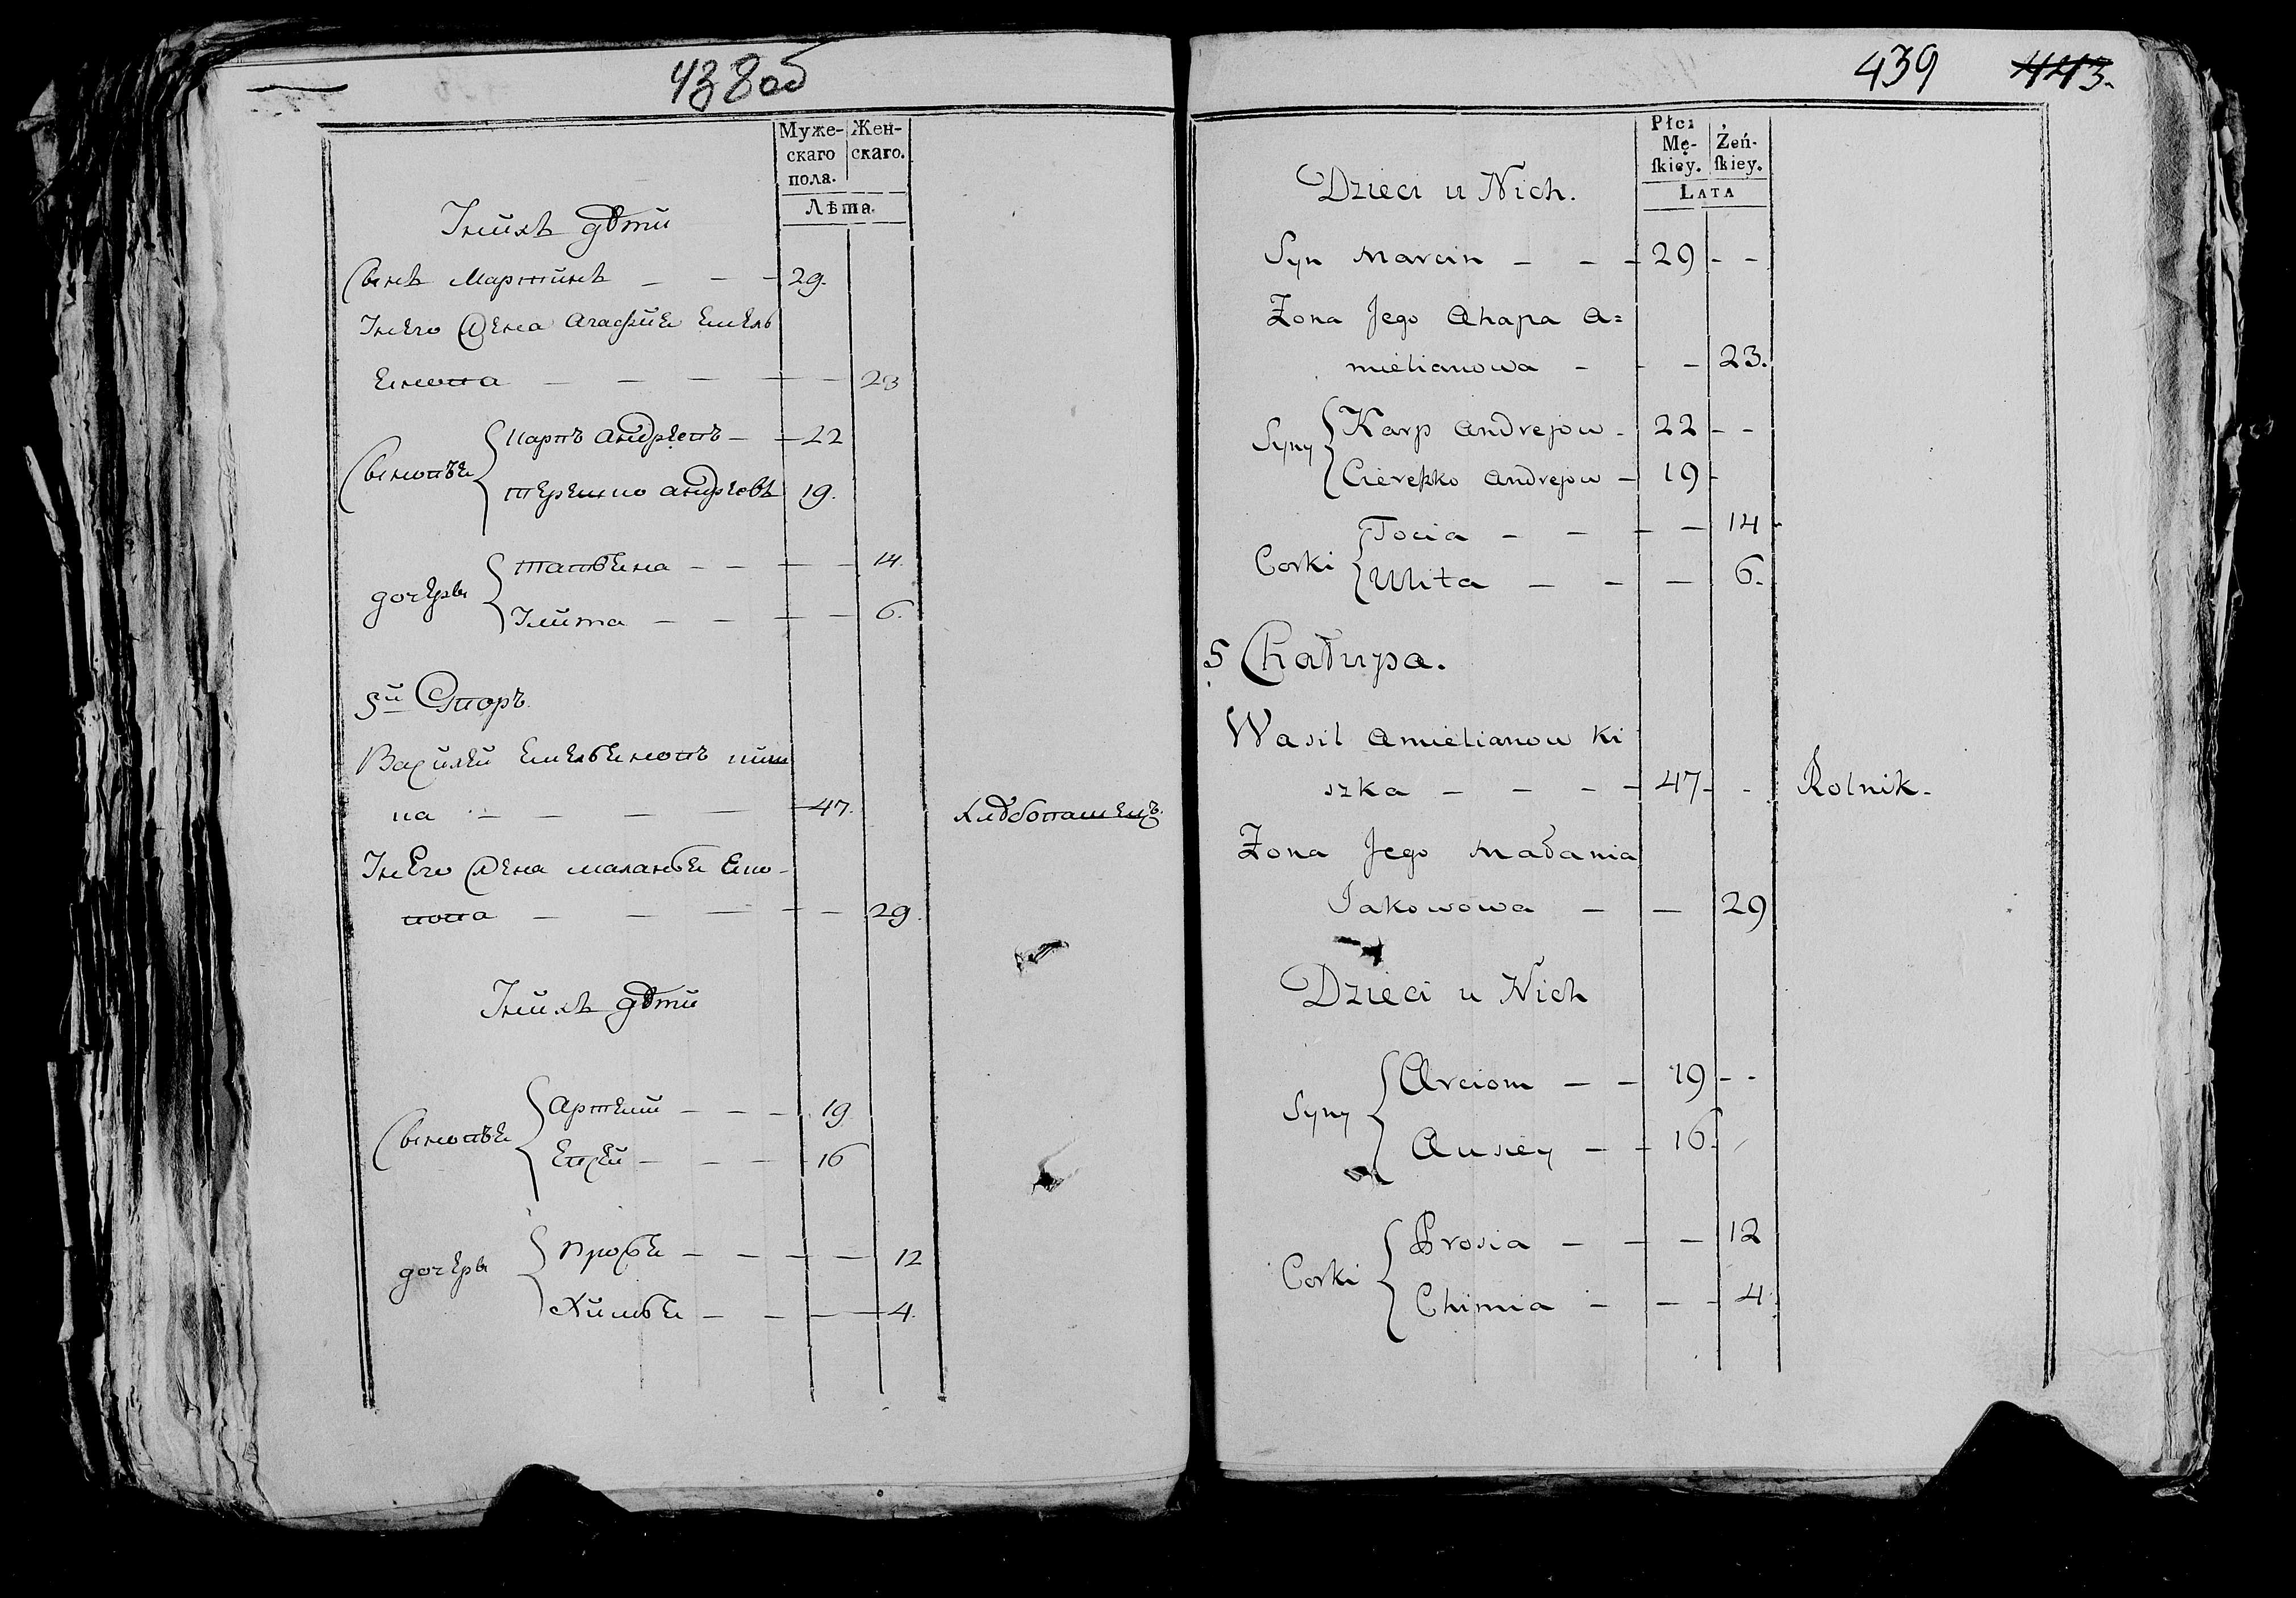 438об
Муже- Жен-
скаго скаго.
пола.
Лѣта.
Унихъ дѣти
Сынъ Мартинъ — — — 29.
Унего Жена Агафия Емель
янова — — — — — 23
Сыновья
Карпъ Андреевъ — — 22
Терешко Андреевъ 19.
дочерьи
— — — — 14.
Улита — — — — 6.
5й Дворъ.
Василей Емельяновъ киш
ка — — — — 47. хлѣбопашецъ.
Унего Жена Маланья Яко-
вова — — — — — 29.
Унихъ дѣти
Сыновья
Артем — — — 19
Евсей — — — 16
дочери
Прося — — — — 12
Химья — — — — 4.
439 443.
Płci Żeń-
Mę- skiey.
skiey.
LATA
Dzieci u Nich.
Syn Marcin — — — 29 - -
Żona Jego Ahapa A=
mielianowa — - — 23.
Syny
Karp Andrejow - 22 - -
Cereszko Andrejow — 19 -
Corki
Tocia — — — — 14
Ulita — — — 6.
5 Chałupa.
Wasil Amielianow Ki
szka — — — — 47 - - Rolnik.
Żona Jego Małania
Jakowowa — — 29
Dzieci u Nich
Syny
Arciom — — 19 - -
Ausiey — — 16 -
Corki
Prosia — — — 12
Chimia — — - 4.